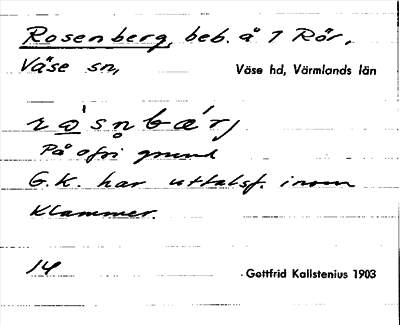 Rosenberg, beb. å 7 Rör,
Väse sn,
Väse hd, Värmlands län
På ofri grund
G.K. har uttalsf. inom
klammer.
14
Gottfrid Kallstenius 1903